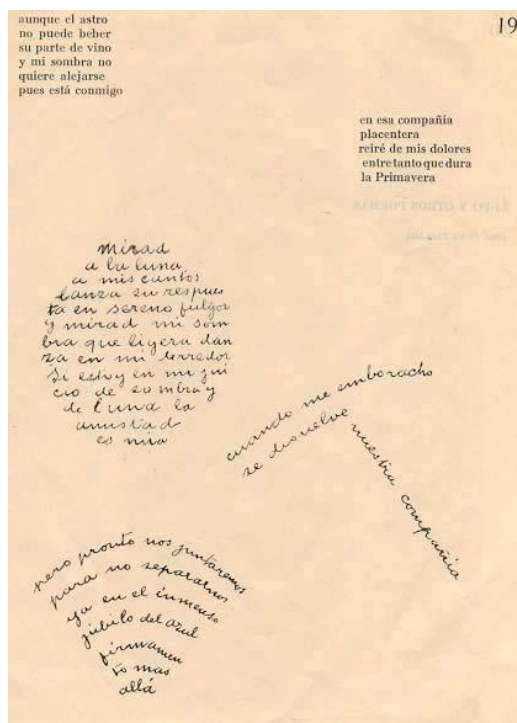 19
aunque el astro
no puede beber
su parte de vino
y mi sombra no
quiere alejarse
pues está conmigo
en esa compañia
placentera
reiré de mis dolores
entretanto que dura
la Primavera
mirad
a la luna
a mis cantos
lanza su respues
ta en sereno fulgor
y mirad mi som
bra que ligera dan
za en mi derredor
Si estoy en mi jui
cio de sombra y
de luna la
amistad
es mia
cuando me emboracho
se disuelve
nuestra compañia
pero pronto nos juntaremos
para no separarnos
ya en el inmenso
júbilo del azul
firmamen
to mas
allá
LI-PO Y OTROS POEMAS
JOSÉ JUAN TABLADA